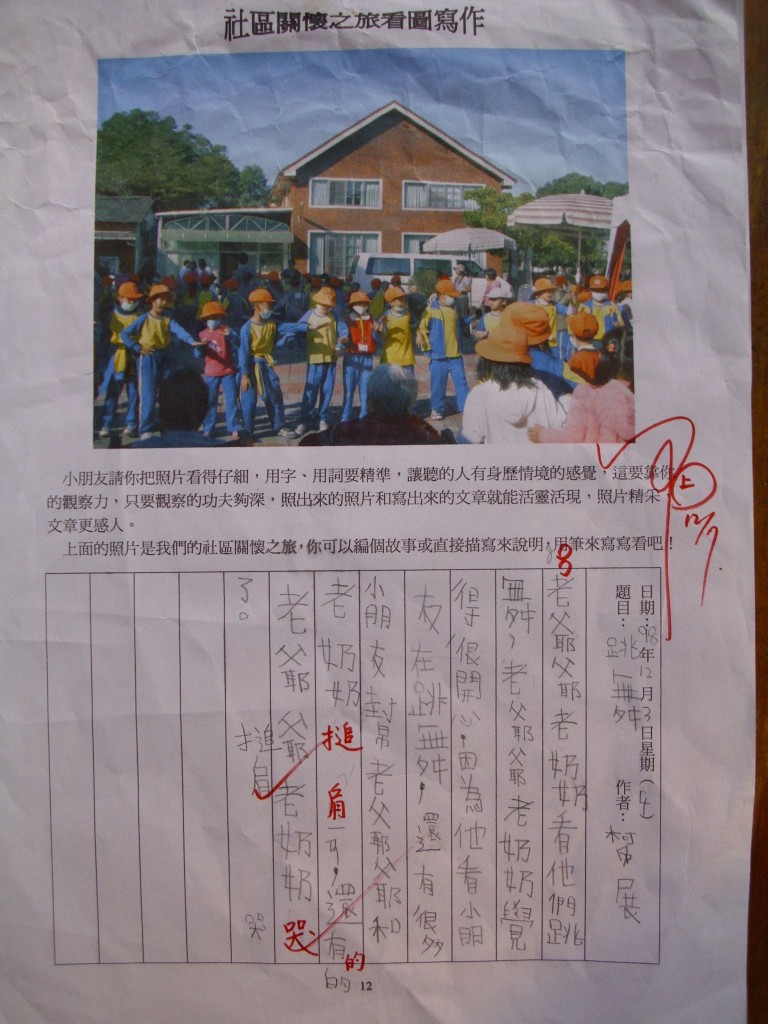 社區關懷之旅看圖寫作
小朋友請你把照片看得仔細，用字、用詞要精準，讓聽的人有身歷情境的感覺，這要靠你
的觀察力，只要觀察的功夫夠深，照出來的照片和寫出來的文章就能活靈活現，照片精采
文章更感人。
上面的照片是我們的社區關懷之旅，你可以編個故事或直接描寫來說明，用筆來寫寫看吧！
日期：98年12月3日星期（四）
題目：跳舞 作者：
老爺爺老奶奶看他們跳
舞，老爺爺老奶奶覺
得很開心，因為他看小朋
友在跳舞，還有很多
小朋友封帛老爺爺和
老奶奶搥肩，還有的
老爺爺老奶奶哭
了。
搥肩
哭
的
12